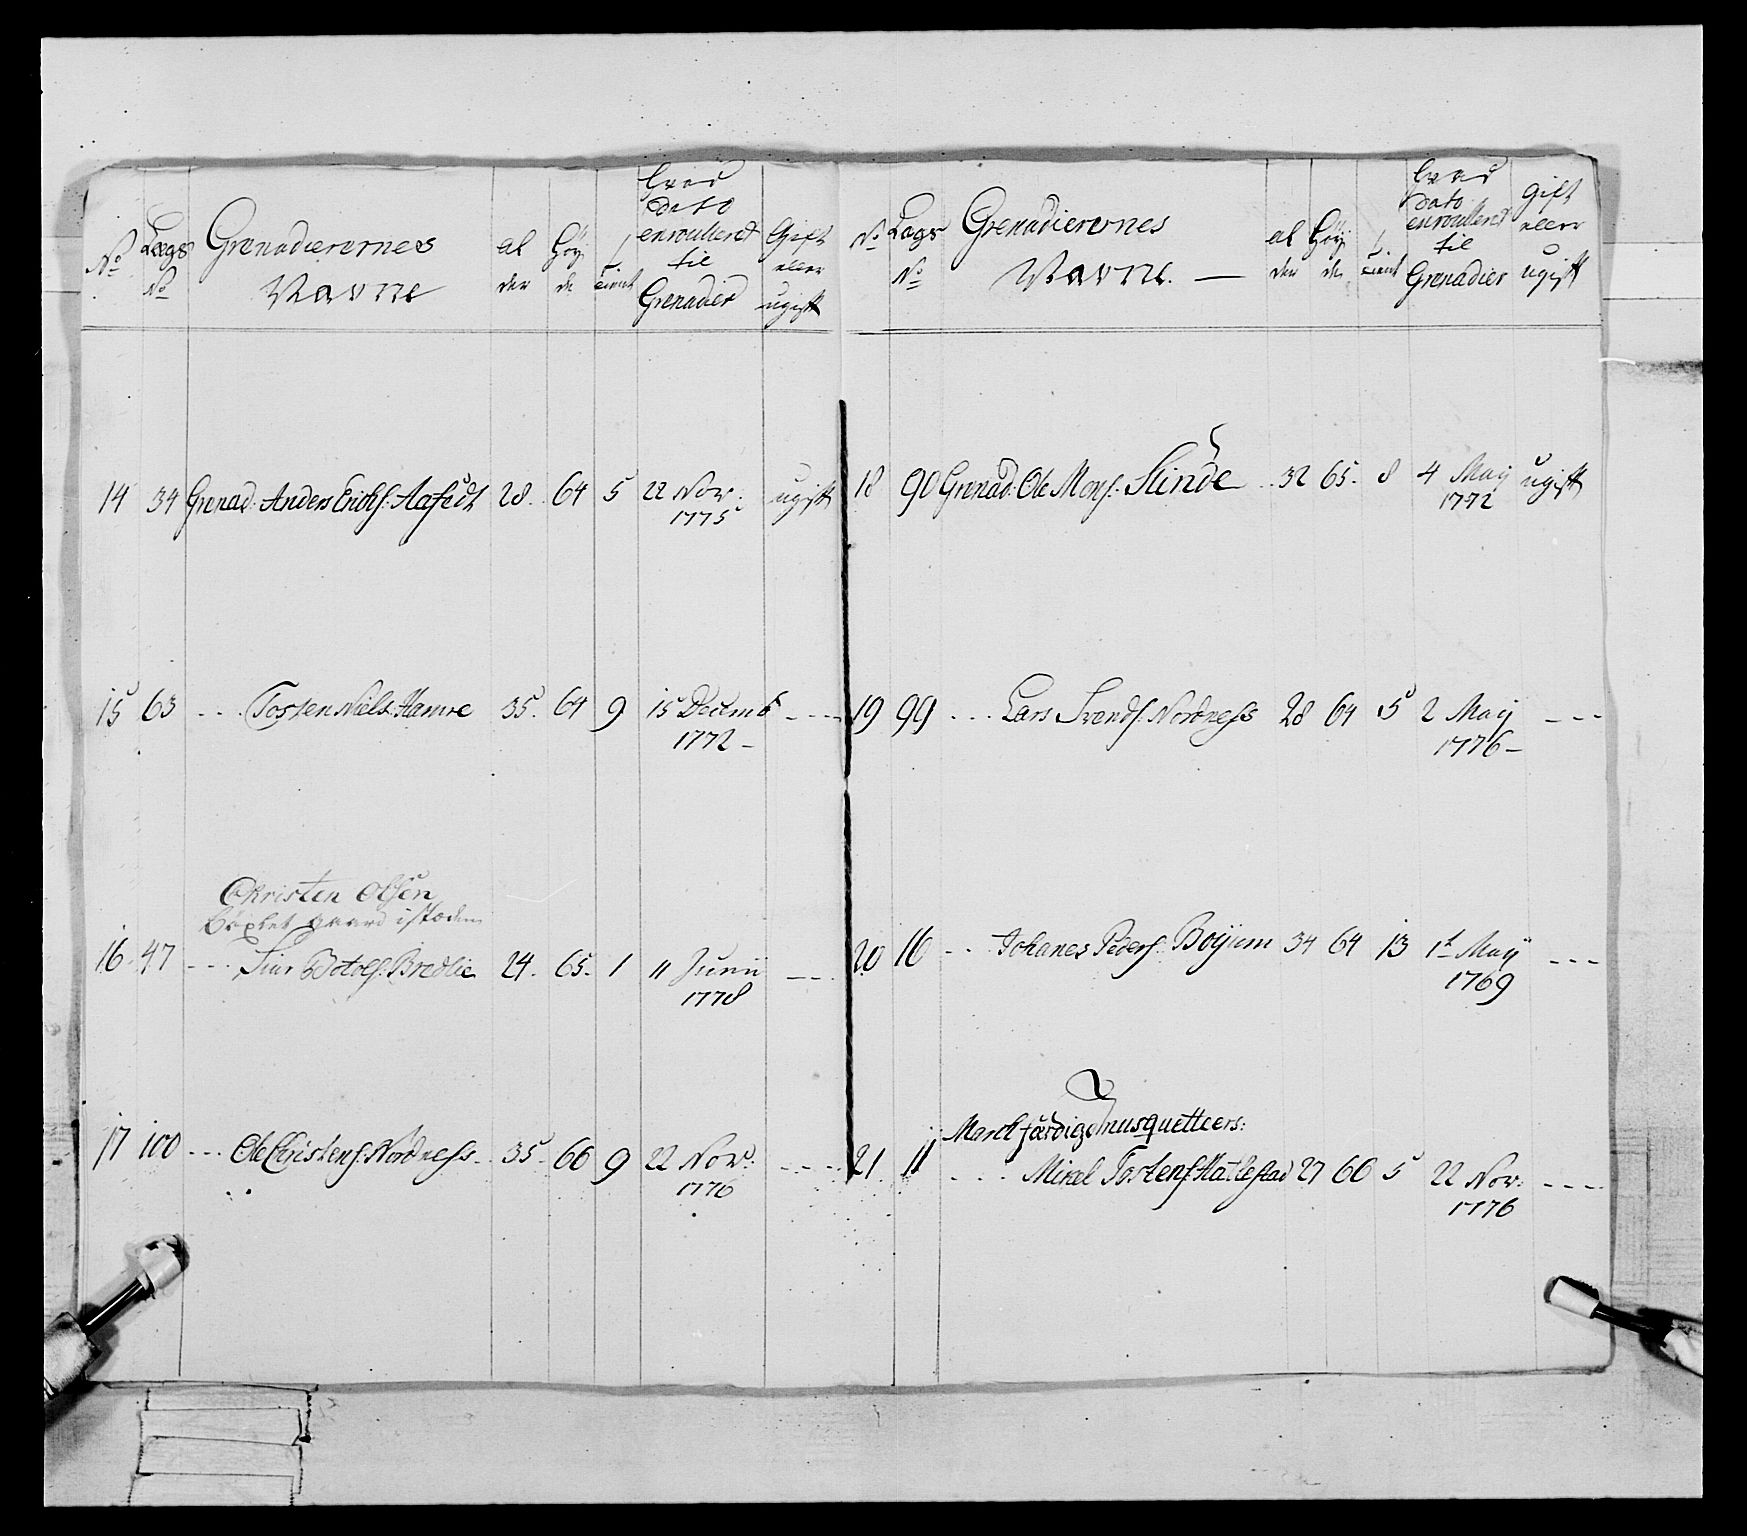 No Lægs No Grenadierernes Navne alder Høyde tient hvad dato enroulleret til Grenadier Gift eller ugift
14 34 Grenad: Anders Erichs: Aafedt 28. 64 5 22 Nov: 1775 ugift
15 63 - - - Tosten Niels: Hamre 35. 64 9 15 Decemb 1772 - - - -
Christen Olsen
bøxlet gaard i stæden
16. 47 - - - Siur Botolfs: Bredlie 24. 65. 1 11 Junii 1778 - - -
17 100 - - - Ole Christens: Nordness 35. 66 9 22 Nov: 1776 - - - -
No Lægs No Grenadierernes Navne. alder Høyde tient hvad dato enroulleret til Grenadier Gift eller ugift
18 90 Grenad: Ole Mons: Slinde 32 65. 8 4 Maij 1772 ugift
19 99 - - - Lars Svends: Nordness 28 64 5 2 Maij 1776 - - -
20 16 - - Johanes Peders: Boijum 34 64 13 1t Maij 1769 - - -
March færdige musquetteers:
21. 11 - - - Mikel Tostens: Hatlestad 27 66 5 22 Nov: 1776 - - - -